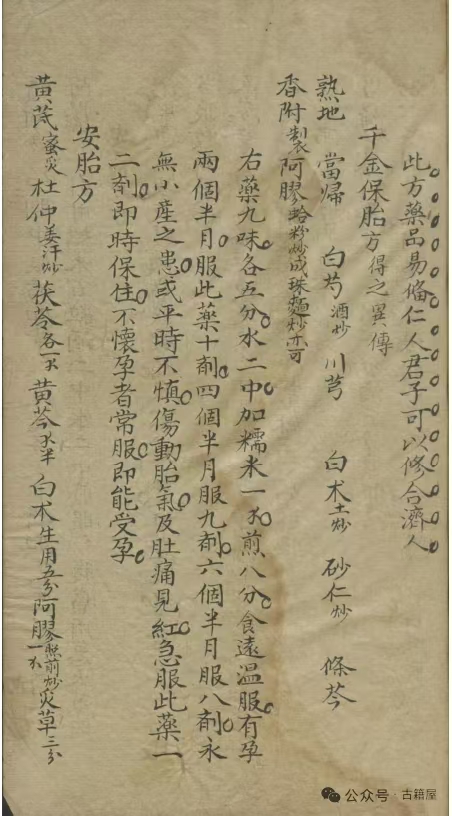 此方藥品易俻仁人君子可以修合濟人
千金保胎方得之異傳
熟地 當歸 白芍酒炒 川芎 白朮土炒 砂仁炒 條芩
香附製 阿膠蛤粉炒成珠麵炒亦可
右藥九味各五分水二中加糯米一 煎八分食遠溫服有孕
兩個半月服此藥十剤四個半月服九剤六個半月服八剤永
無小產之患或平時不慎傷動胎氣及肚痛見紅急服此藥一
二剤即時保住不懷孕者常服即能受孕
安胎方
黃茋蜜炙 杜仲姜汁炒 茯苓各一 黃芩 半 白朮生用五分 阿膠照前炒一 炙草三分
公众号 · 古籍屋